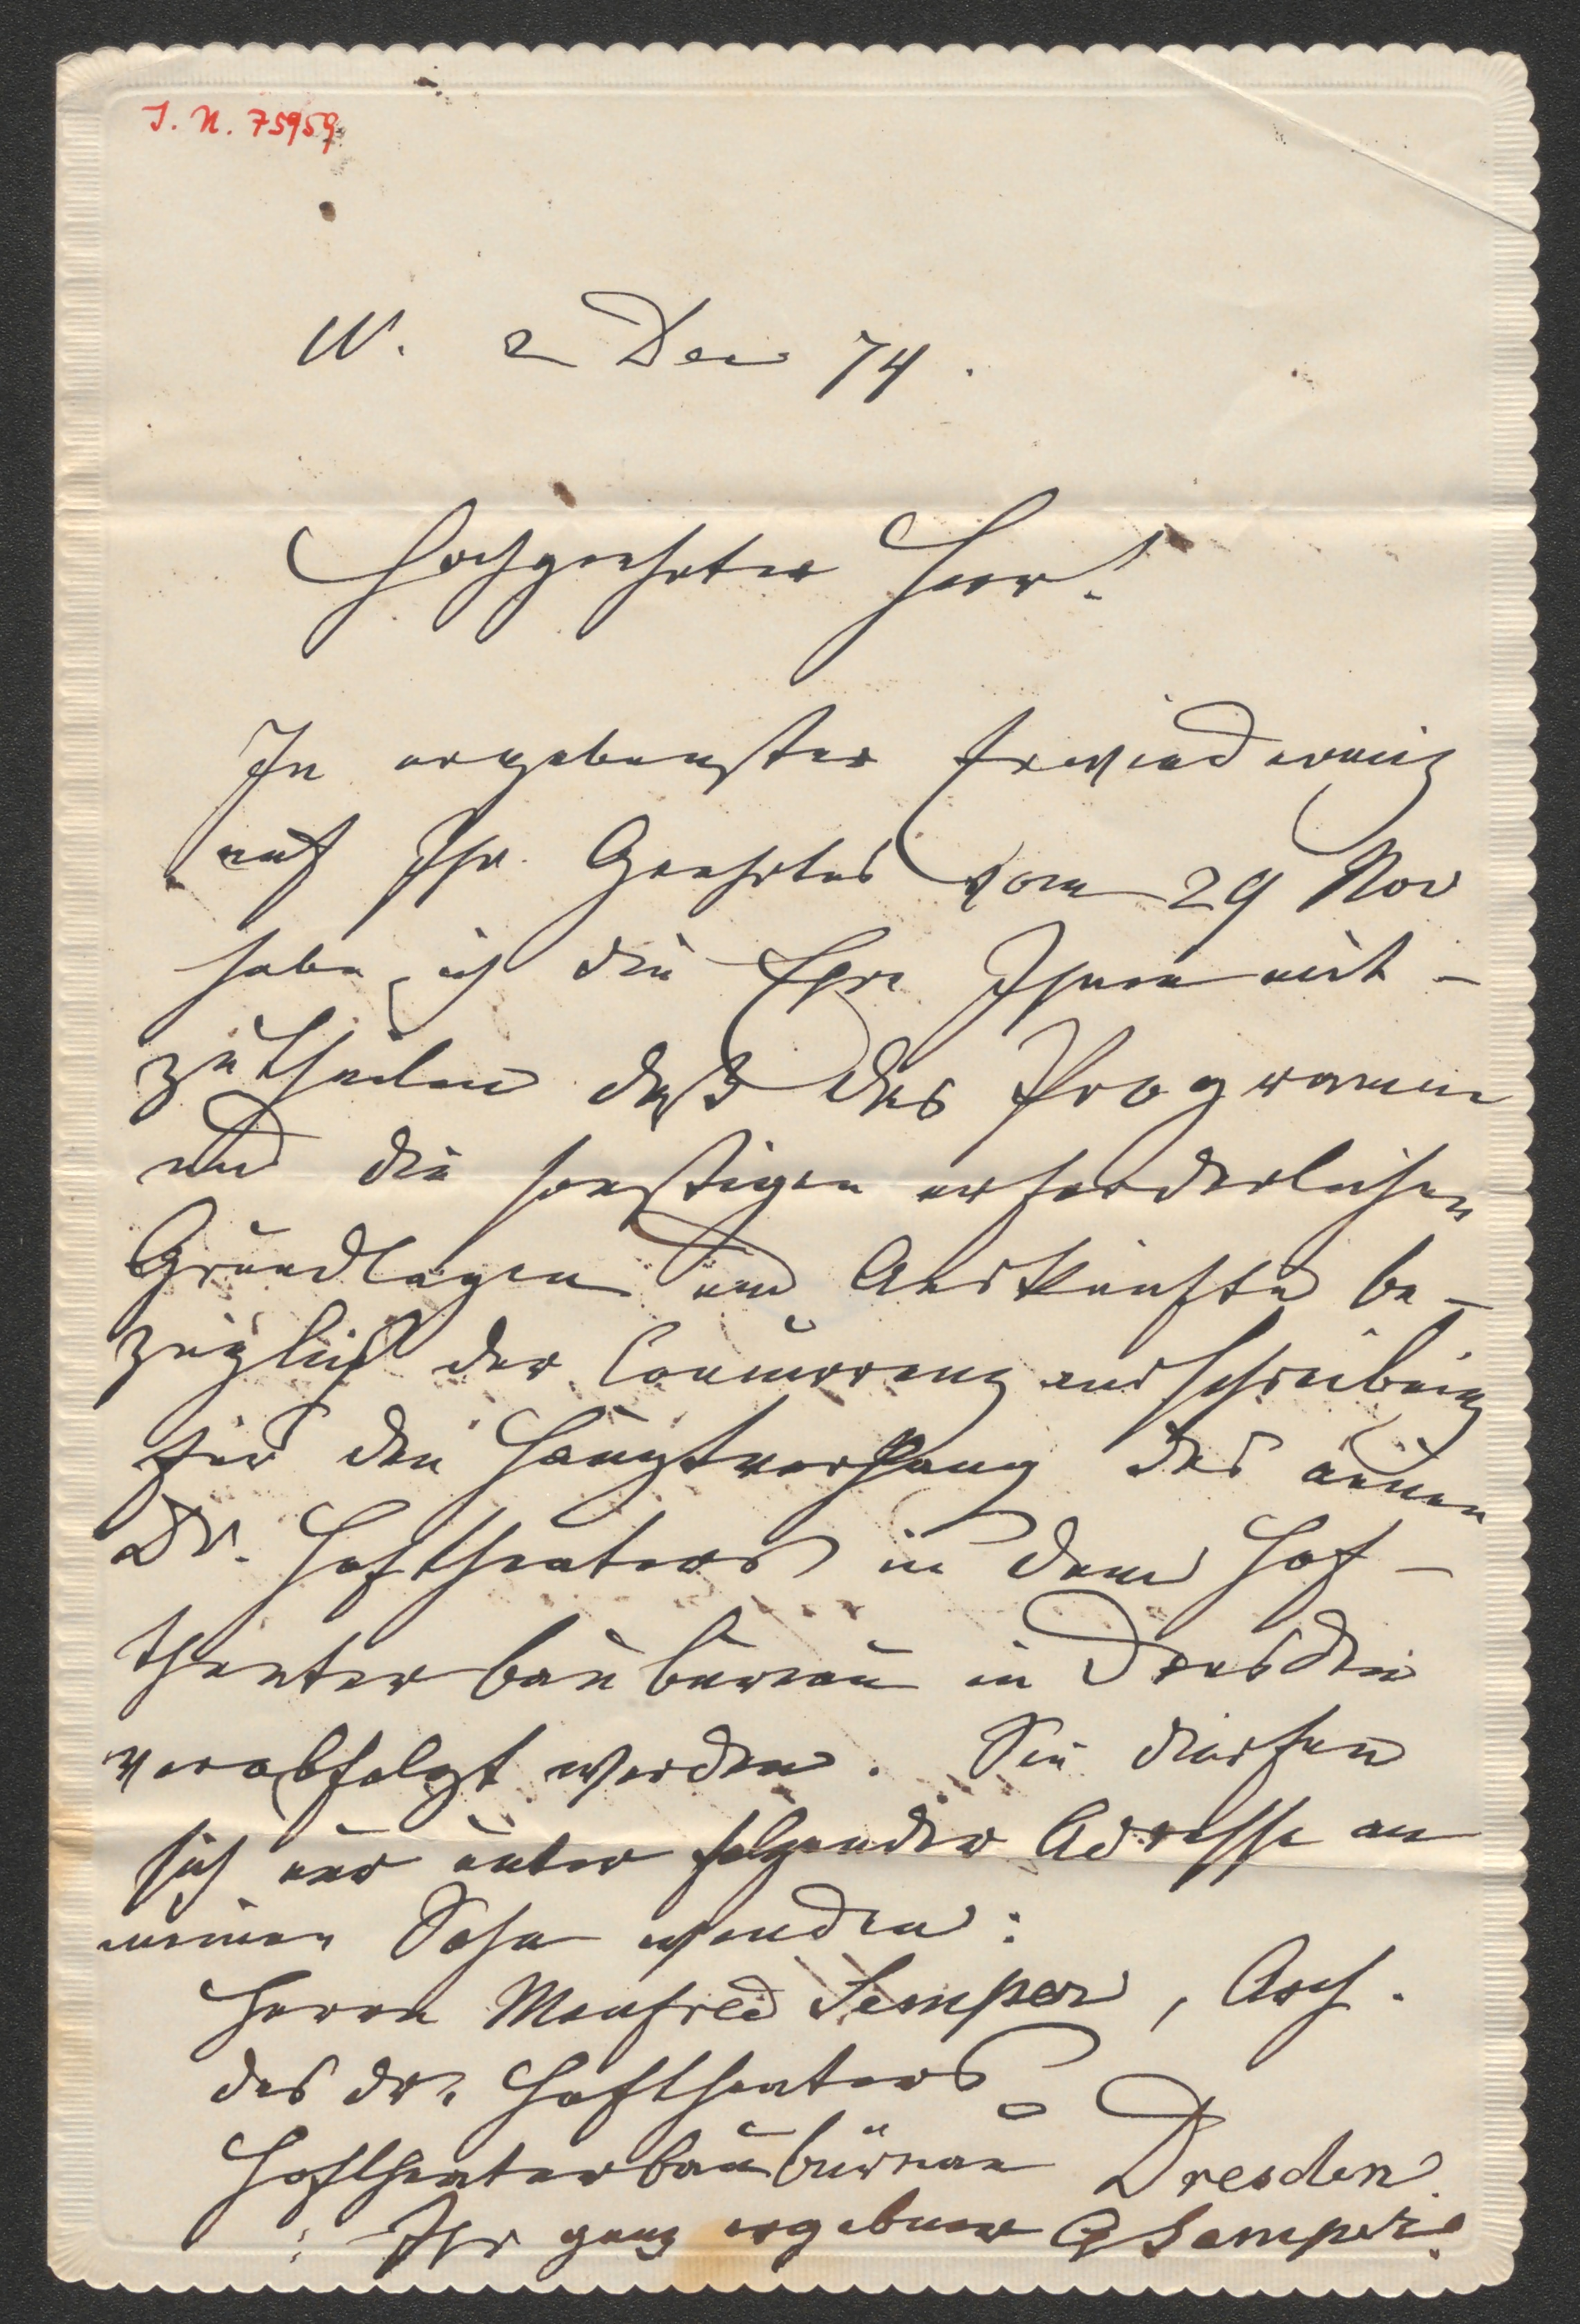 J. N. 75959
W. 2 Dec 74.
Hochgeehrter Herr!
In ergebenster Erwiederung
auf Ihr Geehrtes vom 29 Nov
habe ich die Ehre Ihnen mit-
zutheilen daß das Programm
und die sonstigen erforderlichen
Grundlagen und Auskünfte be-
züglich der Concurrenzausschreibung
für den Hauptvorhang des neuen
Dr. Hoftheaters in dem Hof-
theaterbaubureau in Dresden
verabfolgt werden. Sie dürfen
sich nur unter folgender Adresse an
meinen Sohn wenden:
Herrn Manfred Semper, Arch.
des dr. Hoftheaters
Hoftheaterbaubüreau Dresden.
Ihr ganz ergebener GSemper.